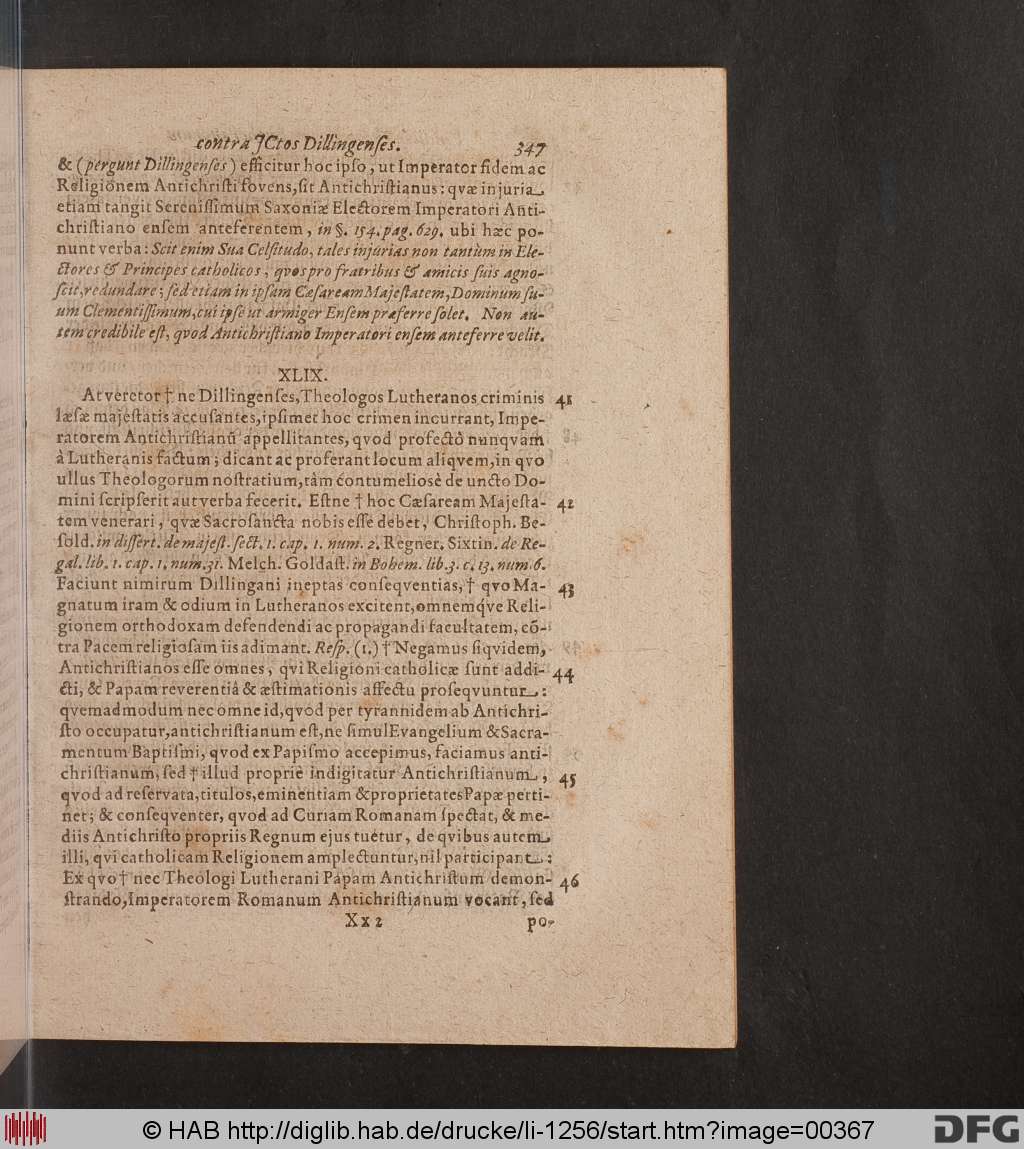 contra JCtos Dillingenſes. 347
& (pergunt Dillingenſes) efficitur hoc ipſo, ut Imperator fidem ac
Religionem Antichriſti fovens, ſit Antichriſtianus: qvæ injuria
etiam tangit Sereniſſimum Saxoniæ Electorem Imperatori Anti-
chriſtiano enſem anteferentem, in §. 154. pag. 629. ubi hæc po-
nunt verba: Scit enim Sua Celſitudo, tales injurias non tantùm in Ele-
ctores & Principes catholicos, qvos pro fratribus & amicis ſuis agno-
ſcit, redundare; ſed etiam in ipſam Cæſaream Majeſtatem, Dominum ſu-
um Clementiſſimum, cui ipſe ut armiger Enſem præferre ſolet. Non au-
tem credibile eſt, qvod Antichriſtiano Imperatori enſem anteferre velit.
XLIX.
At vereor † ne Dillingenſes, Theologos Lutheranos criminis 41
læſæ majeſtatis accuſantes, ipſimet hoc crimen incurrant, Impe-
ratorem Antichriſtianũ appellitantes, qvod profectò nunqvam
à Lutheranis factum; dicant ac proferant locum aliqvem, in qvo
ullus Theologorum noſtratium, tàm contumelioſè de uncto Do-
mini ſcripſerit aut verba fecerit. Eſtne † hoc Cæſaream Majeſta- 42
tem venerari, qvæ Sacroſancta nobis eſſe debet, Chriſtoph. Be-
ſold. in diſſert. de majeſt. ſect. 1. cap. 1. num. 2. Regner. Sixtin. de Re-
gal. lib. 1. cap. 1. num. 31. Melch. Goldaſt. in Bohem. lib. 3. c. 13. num. 6.
Faciunt nimirum Dillingani ineptas conſeqventias, † qvo Ma- 43
gnatum iram & odium in Lutheranos excitent, omnemq́ve Reli-
gionem orthodoxam defendendi ac propagandi facultatem, cõ-
tra Pacem religioſam iis adimant. Reſp. (1.) † Negamus ſiqvidem,
Antichriſtianos eſſe omnes, qvi Religioni catholicæ ſunt addi- 44
cti, & Papam reverentiâ & æſtimationis affectu proſeqvuntur:
qvemadmodum nec omne id, qvod per tyrannidem ab Antichri-
ſto occupatur, antichriſtianum eſt, ne ſimul Evangelium & Sacra-
mentum Baptiſmi, qvod ex Papiſmo accepimus, faciamus anti-
chriſtianum, ſed † illud propriè indigitatur Antichriſtianum, 45
qvod ad reſervata, titulos, eminentiam & proprietates Papæ perti-
net; & conſeqventer, qvod ad Curiam Romanam ſpectat, & me-
diis Antichriſto propriis Regnum ejus tuetur, de qvibus autem
illi, qvi catholicam Religionem amplectuntur, nil participant:
Ex qvo † nec Theologi Lutherani Papam Antichriſtum demon- 46
ſtrando, Imperatorem Romanum Antichriſtianum vocant, ſed
Xx 2 po-
© HAB http://diglib.hab.de/drucke/li-1256/start.htm?image=00367
DFG